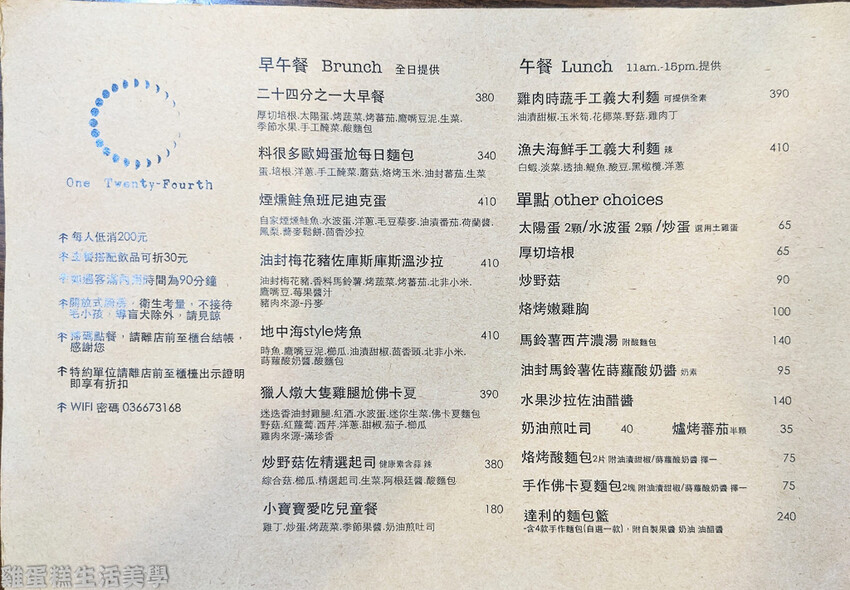 One Twenty-Fourth
每人低消200元
主餐搭配飲品可折30元
如遇客滿內用時間為90分鐘
開放式廚房,衛生考量,不接待
毛小孩,導盲犬除外,請見諒
掃碼點餐,請離店前至櫃台結帳,
感謝您
特約單位請離店前至櫃檯出示證明
即享有折扣
WIFI 密碼 036673168
早午餐 Brunch 全日提供
二十四分之一大早餐 380
厚切培根.太陽蛋.烤蔬菜.烤蕃茄.鷹嘴豆泥.生菜.
季節水果.手工醃菜.酸麵包
料很多歐姆蛋尬每日麵包 340
蛋.培根.洋蔥.手工醃菜.蘑菇.烙烤玉米.油封蕃茄.生菜
煙燻鮭魚班尼迪克蛋 410
自家煙燻鮭魚.水波蛋.洋蔥.毛豆藜麥.油漬番茄.荷蘭醬.
鳳梨.蕎麥鬆餅.茴香沙拉
油封梅花豬佐庫斯庫斯溫沙拉 410
油封梅花豬.香料馬鈴薯.烤蔬菜.烤蕃茄.北非小米.
鷹嘴豆.莓果醬汁
豬肉來源-丹麥
地中海style烤魚 410
時魚.鷹嘴豆泥.櫛瓜.油漬甜椒.茴香頭.北非小米.
蒔蘿酸奶醬.酸麵包
獵人燉大隻雞腿尬佛卡夏 390
迷迭香油封雞腿.紅酒.水波蛋.迷你生菜.佛卡夏麵包
野菇.紅蘿蔔.西芹.洋蔥.甜椒.茄子.櫛瓜
雞肉來源-滿珍香
炒野菇佐精選起司 健康素含蒜 辣 380
綜合菇.櫛瓜.精選起司.生菜.阿根廷醬.酸麵包
小寶寶愛吃兒童餐 180
雞丁.炒蛋.烤蔬菜.季節果醬.奶油煎吐司
午餐 Lunch 11am.-15pm.提供
雞肉時蔬手工義大利麵 可提供全素 390
油漬甜椒.玉米筍.花椰菜.野菇.雞肉丁
漁夫海鮮手工義大利麵 辣 410
白蝦.淡菜.透抽.鯷魚.酸豆.黑橄欖.洋蔥
單點 other choices
太陽蛋 2顆/水波蛋 2顆 /炒蛋 選用土雞蛋 65
厚切培根 65
炒野菇 90
烙烤嫩雞胸 100
馬鈴薯西芹濃湯 附酸麵包 140
油封馬鈴薯佐蒔蘿酸奶醬 奶素 95
水果沙拉佐油醋醬 140
奶油煎吐司 40 爐烤蕃茄半顆 35
烙烤酸麵包2片 附油漬甜椒/蒔蘿酸奶醬 擇一 75
手作佛卡夏麵包2塊 附油漬甜椒/蒔蘿酸奶醬 擇一 75
達利的麵包籃 240
-含4款手作麵包(自選一款),附自製果醬 奶油 油醋醬
雞蛋糕生活美學